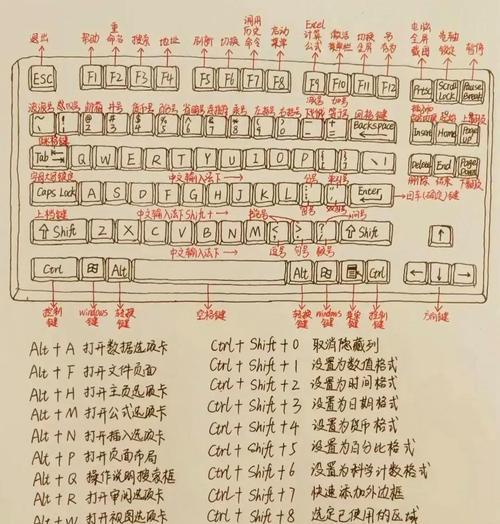 退出 帮助 重命名 搜索 地址 刷新 切换 调用历史命令 启动菜单 Excel计算公式 激活菜单栏 切换全屏 另存为 电脑全屏截图 滚轴锁定 暂停
ESC F1 F2 F3 F4 F5 F6 F7 F8 F9 F10 F11 F12 Prtsc Scroll Lock Pause Break
波浪号 井号 省略号 左括号 右括号 减号 加号 回格键
~ ! @ 2 # 3 $ 4 % 5 Backspace Insert Home Page up
Tab Q W E R T Y U I O P Delete End Page Down
中文输入法下 删除 结束 下翻页
Caps Lock A S D F G H J K L Enter 回车(确定)键
上档键 中文输入法下 Shift+
Shift Z X C V B N M Shift ↑
中文输入法下 逗号 句号
Ctrl Alt Alt Ctrl ← ↓ →
控制键 windows键 转换键 空格键 转换键 windows键 菜单键 控制键 方向键
Alt + A 打开数据选项卡
Alt + F 打开文件页面
Alt + H 打开主页选项卡
Alt + M 打开公式选项卡
Alt + N 打开插入选项卡
Alt + P 打开页面布局
Alt + Q 操作说明搜索框
Alt + R 打开审阅选项卡
Alt + W 打开视图选项卡
Ctrl + Shift + 0 取消隐藏列
Ctrl + Shift + 1 设置为数值格式
Ctrl + Shift + 2 设置为时间格式
Ctrl + Shift + 3 设置为日期格式
Ctrl + Shift + 4 设置为货币格式
Ctrl + Shift + 5 设置为百分比格式
Ctrl + Shift + 6 设置为科学计数格式
Ctrl + Shift + 7 快速添加外边框
Ctrl + Shift + 8 选定已使用的区域